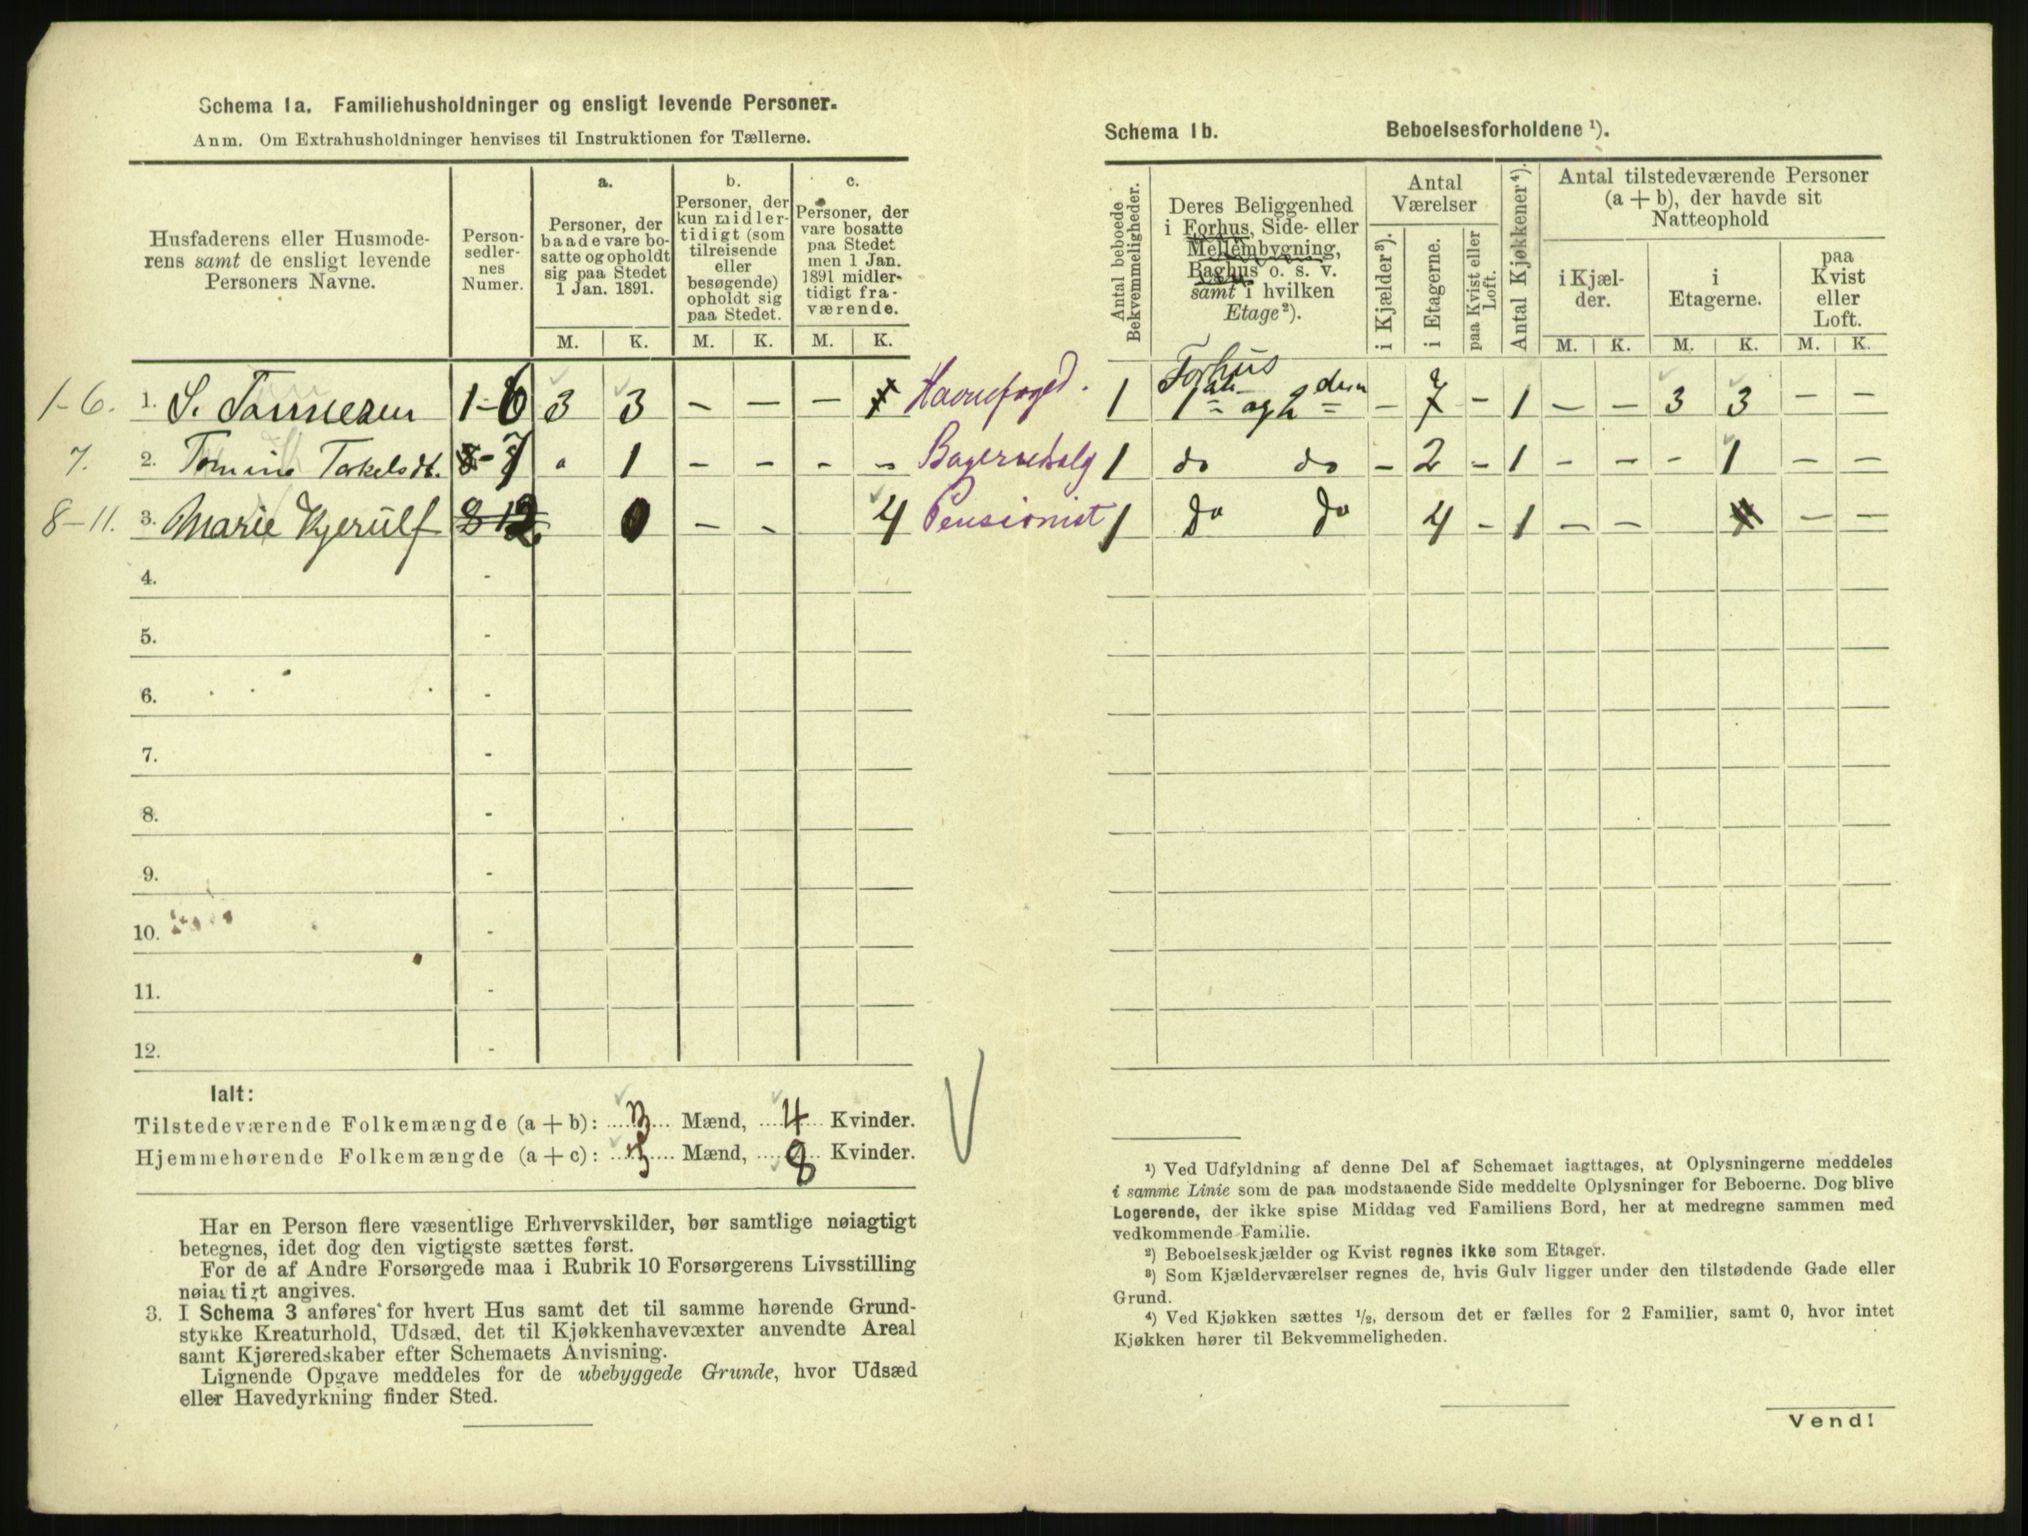 Schema 1a. Familiehusholdninger og ensligt levende Personer.
Anm. Om Extrahusholdninger henvises til Instruktionen for Tællerne.
Husfaderens eller Husmode-
rens samt de ensligt levende
Personers Navne.
Person-
sedler-
nes
Numer.
a.
Personer, der
baade vare bo-
satte og opholdt
sig paa Stedet
1 Jan. 1891.
M. K.
b.
Personer, der
kun midler-
tidigt (som
tilreisende
eller
besøgende)
opholdt sig
paa Stedet.
M. K.
c.
Personer, der
vare bosatte
paa Stedet
men 1 Jan.
1891 midler-
tidigt fra-
værende.
M. K.
1-6. 1. S. Tønnesen 1-6 3 3 – – – Havnefoged.
7. 2. Tomine Torkelsdt. 7 1 – – – –
8-11. 3. Marie Kjerulf 8-12 0 – – 4 Pensionist
4. -
5. -
6. -
7. -
8. -
9. -
10. -
11. -
12. -
Ialt:
Tilstedeværende Folkemængde (a + b): 3 Mænd, 4 Kvinder.
Hjemmehørende Folkemængde (a + c): 3 Mænd, 8 Kvinder.
Har en Person flere væsentlige Erhvervskilder, bør samtlige nøiagtigt
betegnes, idet dog den vigtigste sættes først.
For de af Andre Forsørgede maa i Rubrik 10 Forsørgerens Livsstilling
nøiagtigt angives.
3. I Schema 3 anføres for hvert Hus samt det til samme hørende Grund-
stykke Kreaturhold, Udsæd, det til Kjøkkenhavevæxter anvendte Areal
samt Kjøreredskaber efter Schemaets Anvisning.
Lignende Opgave meddeles for de ubebyggede Grunde, hvor Udsæd
eller Havedyrkning finder Sted.
Schema 1b. Beboelsesforholdene ¹).
Antal beboede
Bekvemmeligheder.
Deres Beliggenhed
i Forhus, Side- eller
Mellembygning,
Baghus o. s. v.
samt i hvilken
Etage²).
Antal
Værelser
i Kjælder³).
i Etagerne.
paa Kvist eller
Loft.
Antal Kjøkkener⁴).
Antal tilstedeværende Personer
(a + b), der havde sit
Natteophold
i Kjæl-
der.
M. K.
i
Etagerne.
M. K.
paa
Kvist
eller
Loft.
M. K.
1 Forhus 1ste og 2den – 7 – 1 – – 3 3 – –
1 do do – 2 – 1 – – – 1 – –
1 do do 4 – 1 – – – –
¹) Ved Udfyldning af denne Del af Schemaet iagttages, at Oplysningerne meddeles
i samme Linie som de paa modstaaende Side meddelte Oplysninger for Beboerne. Dog blive
Logerende, der ikke spise Middag ved Familiens Bord, her at medregne sammen med
vedkommende Familie.
²) Beboelseskjælder og Kvist regnes ikke som Etager.
³) Som Kjælderværelser regnes de, hvis Gulv ligger under den tilstødende Gade eller
Grund.
⁴) Ved Kjøkken sættes ½, dersom det er fælles for 2 Familier, samt 0, hvor intet
Kjøkken hører til Bekvemmeligheden.
Vend!